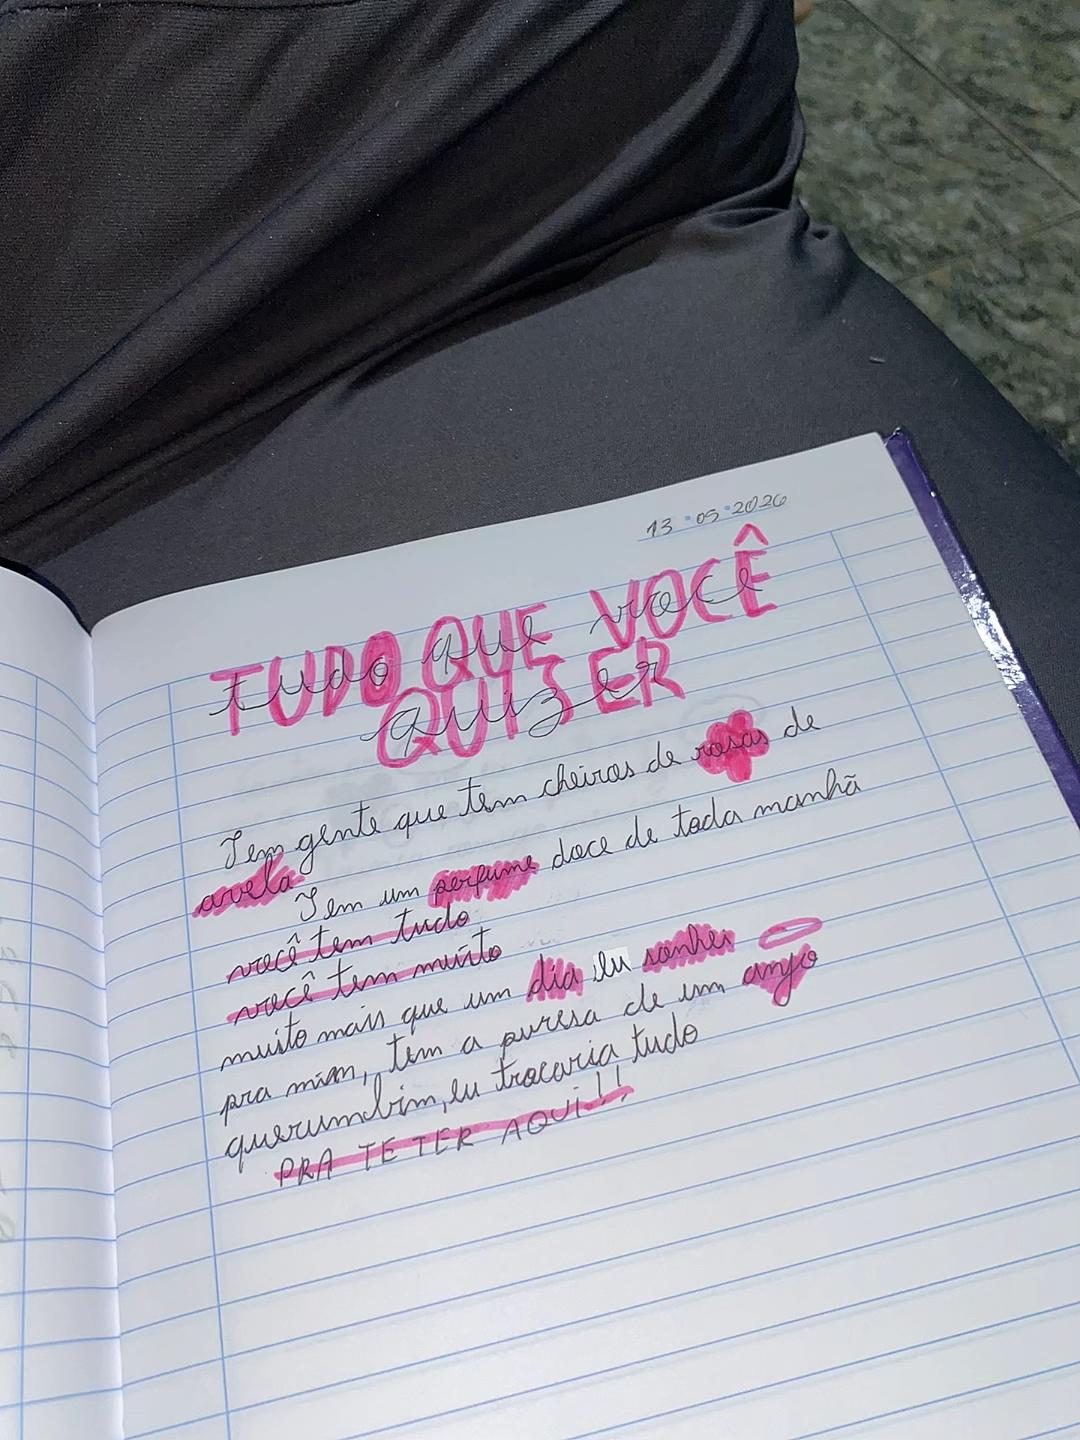 13 · 05 · 2026
TUDO QUE VOCÊ
QUISER
tudo que você
quizer
Tem gente que tem cheiros de rosas de
avela
Tem um perfume doce de toda manhã
você tem tudo
você tem muito
muito mais que um dia eu sonhei
pra mim, tem a puresa de um anjo
querumbim, eu trocaria tudo
PRA TE TER AQUI!!